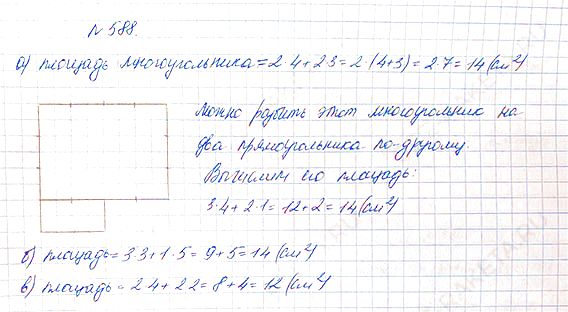 N 588.
а) площадь многоугольника = 2·4+2·3 = 2·(4+3) = 2·7 = 14 (см²)
Можно разбить этот многоугольник на
два прямоугольника по-другому.
Вычислим его площадь:
3·4+2·1 = 12+2 = 14 (см²)
б) площадь = 3·3+1·5 = 9+5 = 14 (см²)
в) площадь = 2·4+2·2 = 8+4 = 12 (см²)